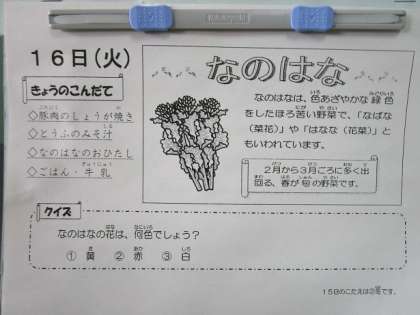 16日(火)
きょうのこんだて
◇豚肉のしょうが焼き
◇とうふのみそ汁
◇なのはなのおひたし
◇ごはん・牛乳
なのはな
なのはなは、色あざやかな緑色
をしたほろ苦い野菜で、「なばな
(菜花)」や「はなな(花菜)」と
もいわれています。
2月から3月ごろに多く出
回る、春が旬の野菜です。
クイズ
なのはなの花は、何色でしょう?
① 黄 ② 赤 ③ 白